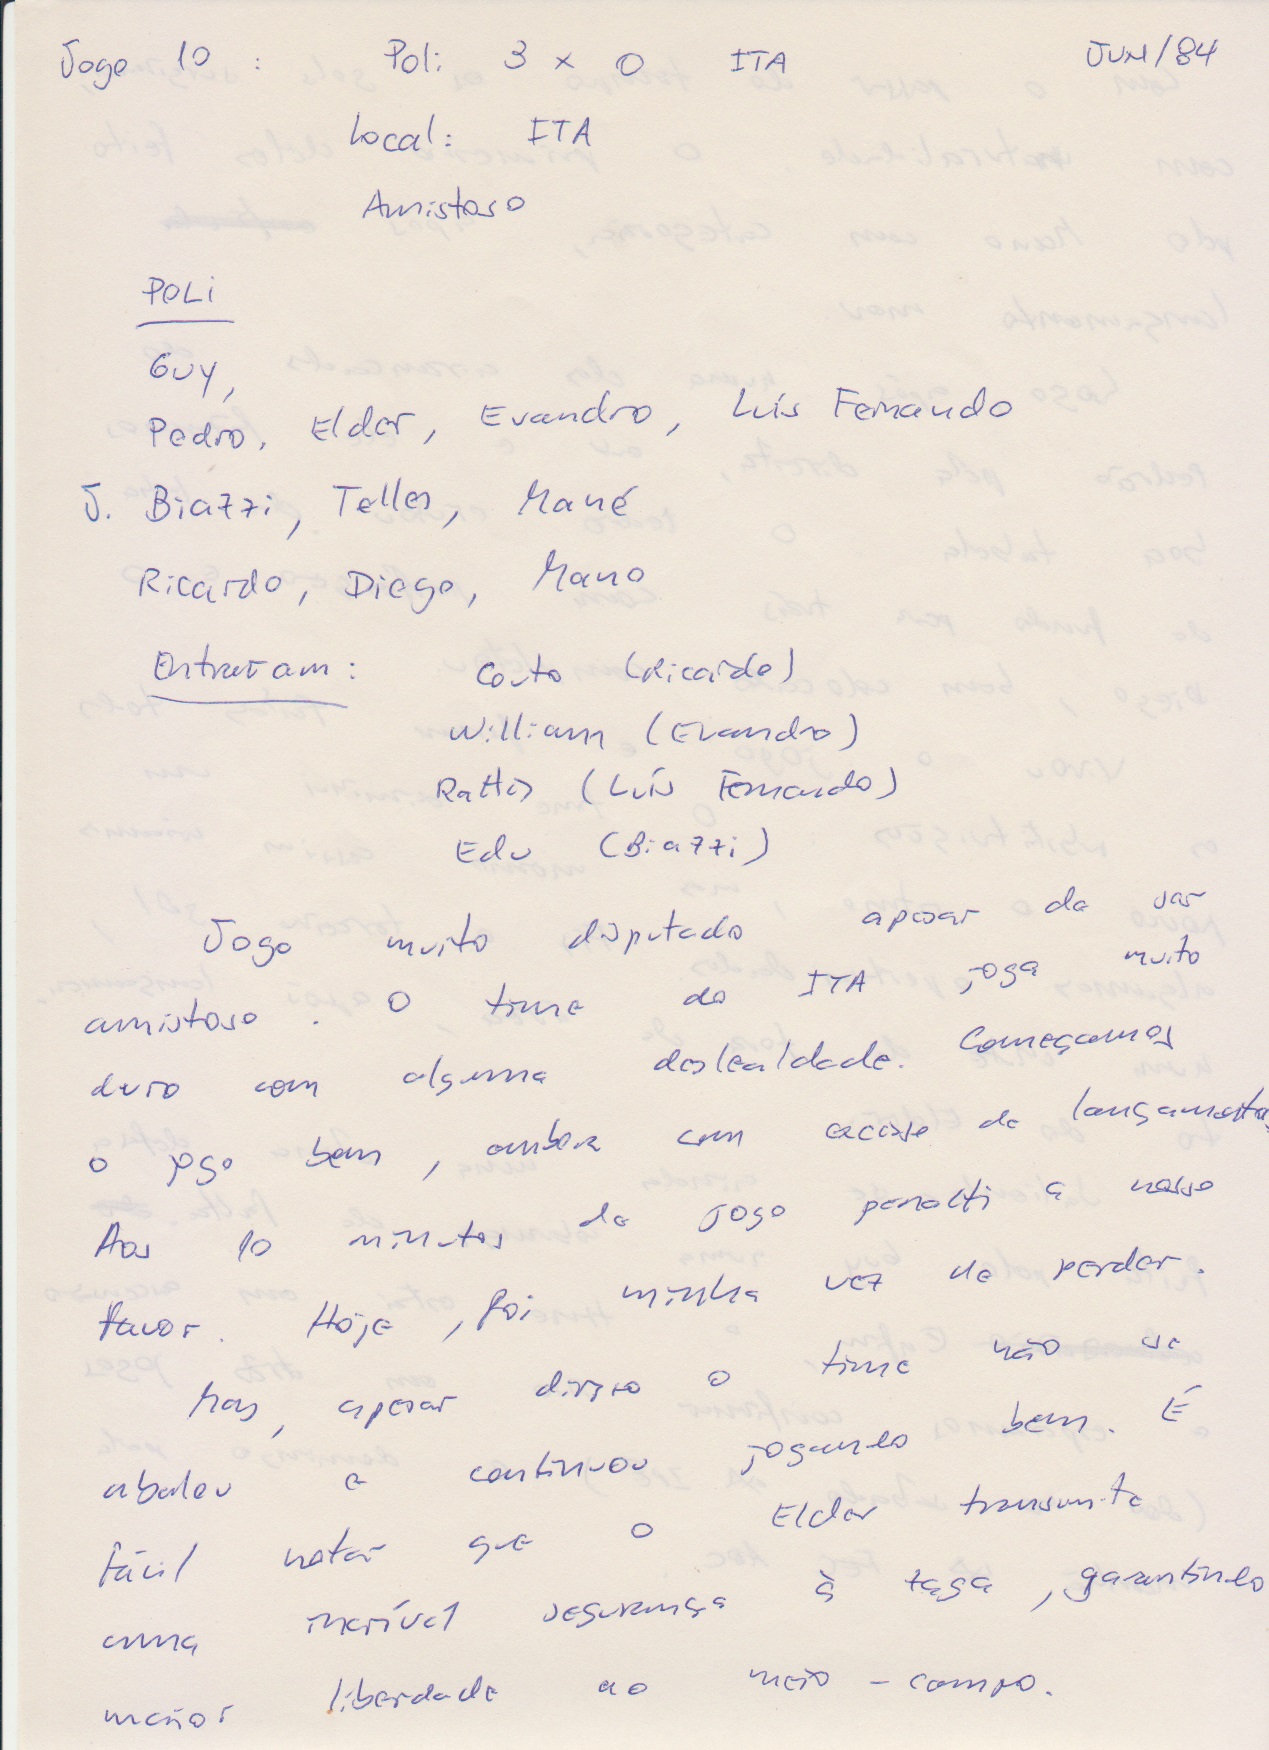 Jogo 10 : Poli 3 x 0 ITA JUN/84
Local: ITA
Amistoso
POLI
Guy,
Pedro, Elder, Evandro, Luís Fernando
J. Biazzi, Telles, Mané
Ricardo, Diego, Mano
Entraram: Couto (Ricardo)
William (Evandro)
Rattis (Luís Fernando)
Edu (Biazzi)
Jogo muito disputado apesar de ser
amistoso. O time do ITA joga muito
duro com alguma deslealdade. Começamos
o jogo bem, embora com de lançamentos.
Aos 10 minutos de jogo penalti a nosso
favor. Hoje, foi minha vez de perder.
Mas, apesar disso o time não se
abalou e continuou jogando bem. É
fácil notar que o Elder transmite
uma incrível segurança à zaga, garantindo
maior liberdade ao meio-campo.